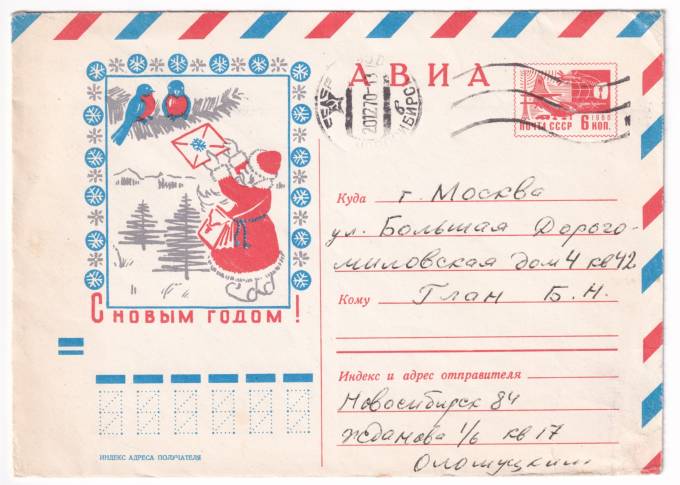 АВИА
201270-13
СИБИРСК
ПОЧТА СССР
1966
6 КОП.
Куда г. Москва
ул. Большая Дорого-
миловская дом 4 кв 42
Кому Глан Б. Н.
С НОВЫМ ГОДОМ!
Индекс и адрес отправителя
Новосибирск 84
Жданова 1/6 кв 17
Оломуцкий
ИНДЕКС АДРЕСА ПОЛУЧАТЕЛЯ